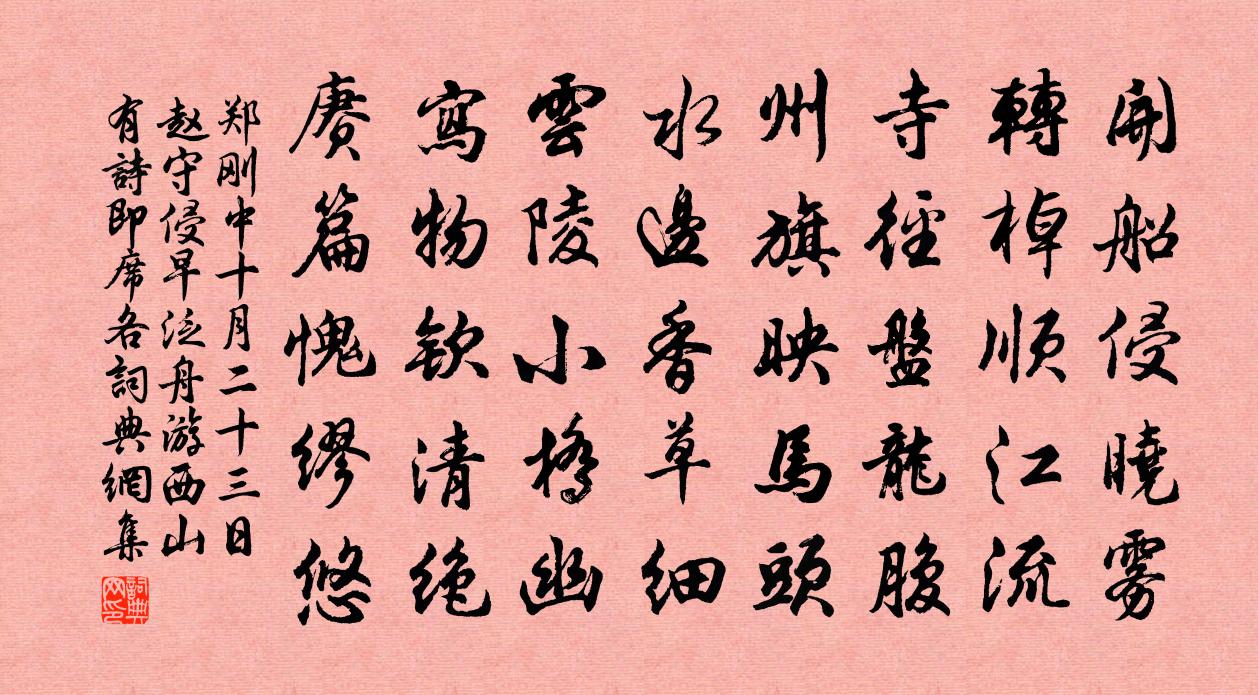 開船侵曉霧
轉棹順江流
寺徑盤龍腹
州旗映馬頭
水邊香草細
雲陵小橋幽
寫物欽清絶
賡篇愧繆悠
郑刚中十月二十三日
赵守侵早泛舟游西山
有詩即席各詞典網集
詞典網印